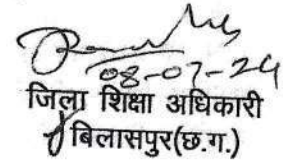 08-07-24
जिला शिक्षा अधिकारी
बिलासपुर(छ.ग.)